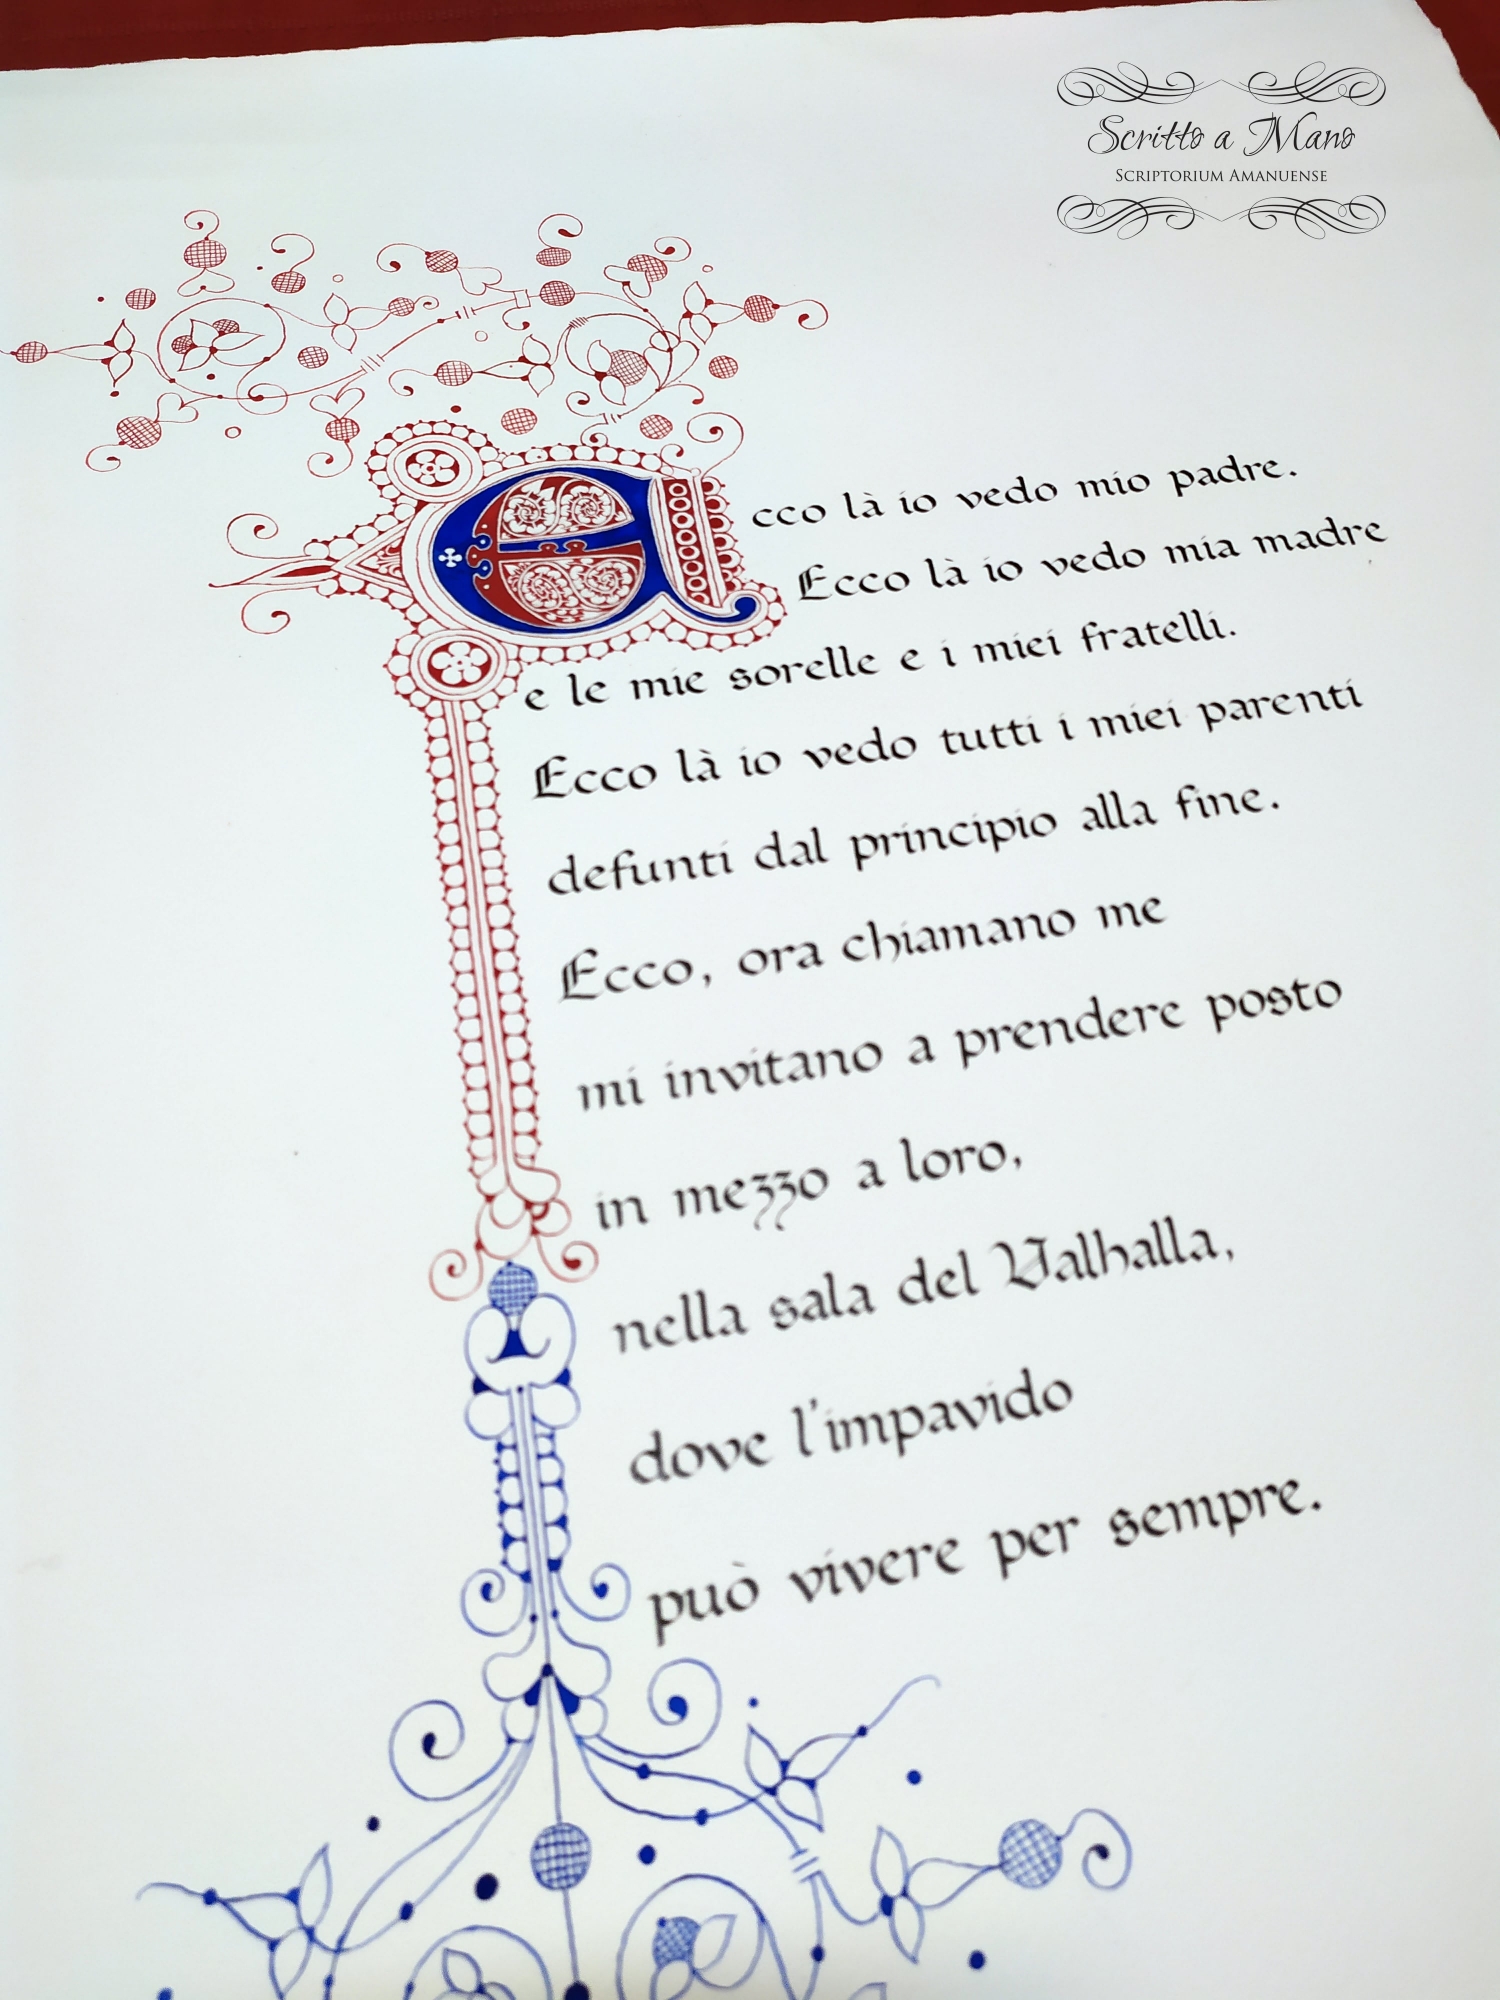 Scritto a Mano
Scriptorium Amanuense
Ecco là io vedo mio padre.
Ecco là io vedo mia madre
e le mie sorelle e i miei fratelli.
Ecco là io vedo tutti i miei parenti
defunti dal principio alla fine.
Ecco, ora chiamano me
mi invitano a prendere posto
in mezzo a loro,
nella sala del Valhalla,
dove l'impavido
può vivere per sempre.